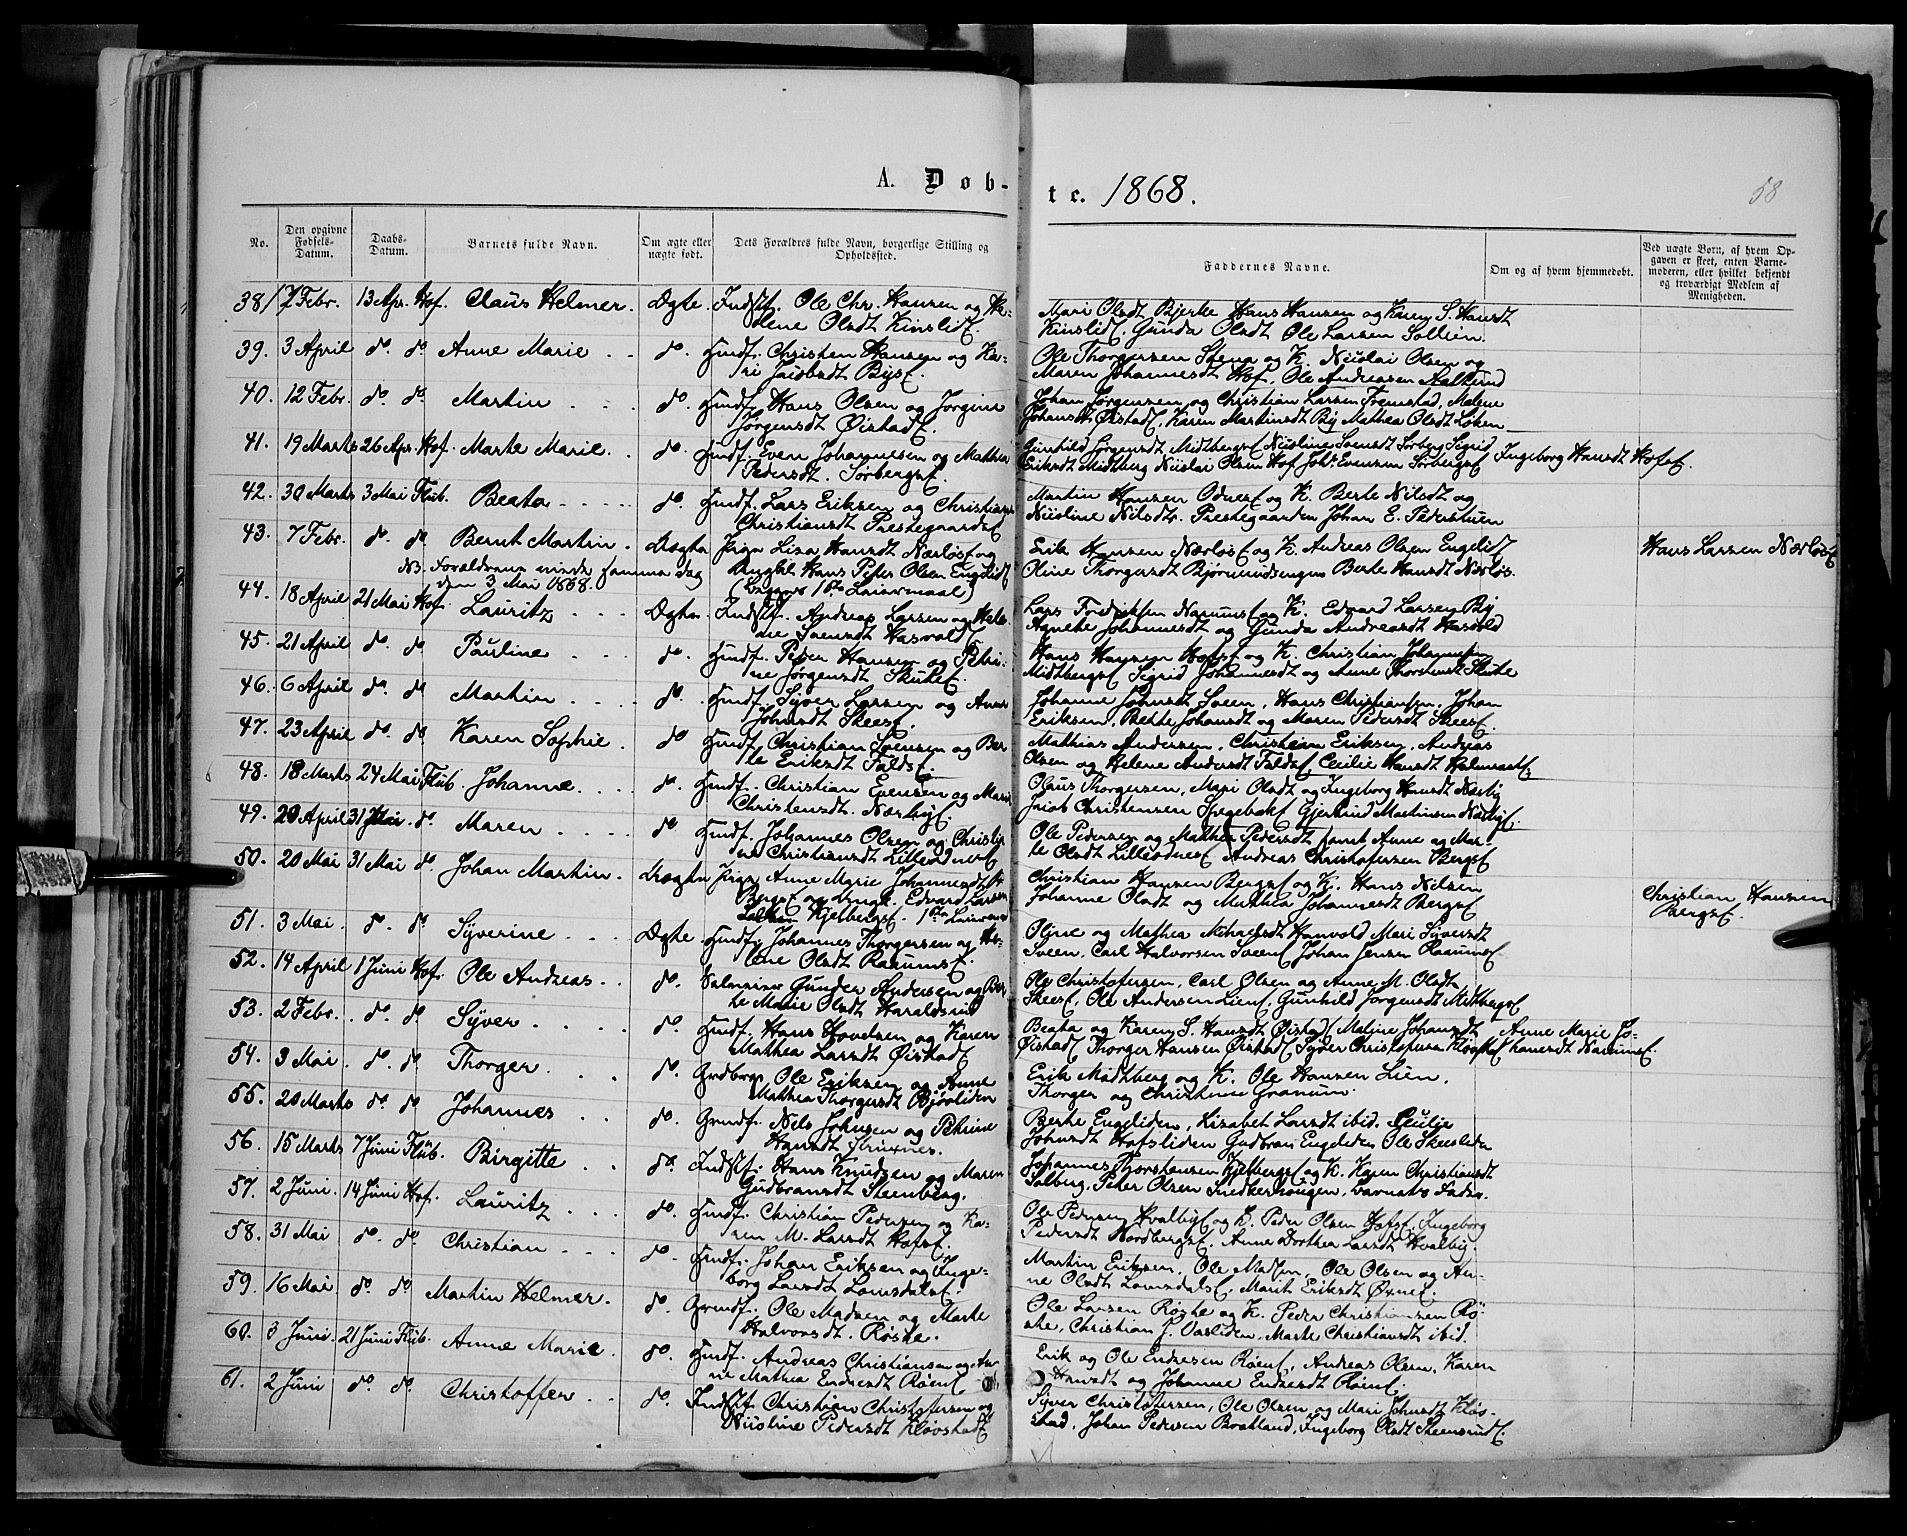 A. Døb-
t c. 1868.
58
No.
Den opgivne Fødsels-Datum.
Daabs-Datum.
Barnets fulde Navn.
Om ægte eller uægte født.
Dets Forældres fulde Navn, borgerlige Stilling og Opholdssted.
Faddernes Navne.
Om og af hvem hjemmedøbt.
Ved uægte Børn, af hvem Opgaven er skeet, enten Barnemoderen, eller hvilket bekjendt og troværdigt Medlem af Menigheden.
38. 7 Febr. 13 Apr. Hof. Claus Helmer. Ægte. Indst. Ole Chr. Hansen og He- Mari Olsdt Bjerke Hans Hansen og Karen S. Hansdt
lene Olsdt Kinslid. Kinslid, Gunda Olsdt Ole Larsen Sollien.
39. 3 April do. do Anne Marie do. Gmdf. Christen Hansen og Ka- Ole Thorgersen Stena og K. Nicolai Olsen og
ri Jacobsdt Bys. Maren Johannesdt Hof, Ole Andreasen
40. 12 Febr. do. do. Martin do. Gmdf. Hans Olsen og Jorgine Johan Jørgensen og Christian Larsen Fremstad, Malene
Jørgensdt Øistad. Johansdt. Øistad, Karen Martinsdt By Mathea Olsdt Løken
41. 19 Marts 26 Apr. Hof. Marte Marie. do. Gmdf. Even Johannesen og Mathea Gunhild Jørgensdt Midtberg Nicoline Svensdt Sørberg Sigrid Ingeborg Hansdt Hofs.
Pedersdt. Sørbergs. Eriksdt Midtberg Nicolai Olsen Hof Johs. Evensen Sørbergs
42. 30 Marts 3 Mai Flub. Beata do. Gmdf. Lars Eriksen og Christiane Martin Hansen Odnes og K. Berte Nilsdt og
Christiansdt Prestegaards Nicoline Nilsdtr. Prestegaarden Johan E. Pederstuen
43. 7 Febr. do. do. Bernt Martin. Uægte Pige Lisa Hansdt Nærløs og Erik Hansen Nærløs og K. Andreas Olsen Engelid Hans Larsen Nærløs
NB. Forældrene viede samme dag Ungkl. Hans Peter Olsen Engelid Oline Thorgersdt Bjørnerudsengen Berte Hansdt Nærløs.
den 3 Mai 1868. (Begges 1ste Leiermaal)
44. 18 April 21 Mai Hof. Lauritz Ægte. Indst. Andreas Larsen og Hele- Lars Fredriksen Narums og K. Edvard Larsen By
ne Svensdt Hasvold Agnethe Johannesdt og Gunda Andreasdt Hasvold
45. 21 April do. do Pauline do. Gmdf. Peder Hansen og Petri- Hans Hansen Hofs og K. Christian Johannesen
ne Jørgensdt Skutes. Midtbergs Sigrid Johannesdt og Anne Thorstensdt Skute
46. 6 April do. do Martin do. Gmdf. Syver Larsen og Anne Johanne Johnsdt Sveen, Hans Christiansen, Johan
Johnsdt Skees. Eriksen, Berte Johansdt og Maren Pedersdt Skees
47. 23 April do. do. Karen Sophie. do Gmdf. Christian Svensen og Ber Mathias Andersen, Christian Eriksen, Andreas
te Eriksdt Falds Olsen og Helene Andersdt Falds Cecilie Hansdt
48. 18 Marts 24 Mai Flub. Johanne do. Gmdf. Christian Evensen og Marie Olaus Thorgersen, Mari Olsdt og Ingeborg Hansdt Nærby
Christensdt. Nærbys. Jacob Christensen Gjertrud Martinsen Nærbys.
49. 20 April 31 Mai do. Maren do. Gmdf. Johannes Olsen og Christi- Ole Pedersen og Mathea Pedersdt samt Anne og Mar-
ne Christiansdt Lilleodnes te Olsdt Lilleodnes Andreas Christofersen Bergs
50. 20 Mai 31 Mai do. Johan Martin. Uægte Pige Anne Marie Johannesdt Christian Hansen Bergs og K. Hans Nilsen Christian Hansen
Bergs og ungk. Edvard Larsen Johanne Olsdt og Mathea Johannesdt Bergs Bergs.
Kjelbergs. 1ste
51. 3 Mai. do. do Syverine Ægte Gmdf. Johannes Thorgersen og He- Oline og Mathea Mikaelsdt Hanvold Mari Syversdt
lene Olsdt Raaums. Sveen, Carl Halvorsen Sveen Johan Jensen Raaums
52. 14 April 1 Juni Hof. Ole Andreas. do. Gunder Andersen og Ber Ole Christofersen, Carl Olsen og Anne M. Olsdt
te Marie Olsdt Haraldsrud Skees, Ole Andersen Lien, Gunhild Jørgensdt Midtbergs
53. 2 Febr. do. do. Syver do. Gmdf. Hans Hovelsen og Karen Beata og Karen S. Hansdt Øistad Maline Johansdt Anne Marie Jo-
Mathea Larsdt Øistad Øistad Thorger Hansen Øistad Syver Christofersen Kløvstad hanesdt Narums.
54. 3 Mai. do. do Thorger. do. Grdbrgr Ole Eriksen og Anne Erik Midtberg og K. Ole Hansen Lien,
Mathea Thorgersdt Bjøvliden Thorger og Christine Granum
55. 20 Marts do. do Johannes do. Grmdf. Nils Johnsen og Petrine Berte Engeliden, Lisabet Larsdt ibid. Cecilie
Hansdt Johnsdt Hofsliden Gudbran Engeliden Ole Skeesliden
56. 15 Marts 7 Juni Flub. Birgitte do. Indst. Hans Knudsen og Maren Johannes Thorstensen Kjelbergs og K. Karen Christiansdt
Gudbransdt Steenberg. Solberg, Peter Olsen Snedkerhaugen, barnets Fader.
57. 2 Juni. 14 Juni Hof. Lauritz do. Gmdf. Christian Pedersen og Ka- Ole Pedersen Hvalbys og K. Peder Olsen Hofs, Ingeborg
ren M. Larsdt Hofs. Pedersdt Nordbergs. Anne Dorthea Larsdt Hvalby.
58. 31 Mai do. do. Christian do. Gmdf. Johan Eriksen og Inge- Martin Eriksen, Ole Madsen, Ole Olsen og An-
borg Larsdt Lomsdals. ne Olsdt Lomsdals, Marit Eriksdt Øvnes.
59. 16 Mai do. do Martin Helmer. do. Grmdf. Ole Madsen og Marte Ole Larsen Røste og K. Peder Christiansen Rø-
Halvorsdt. Røste. ste, Christian J. Vasliden, Marte Christiansdt ibid.
60. 3 Juni. 21 Juni Flub. Anne Marie. do. Gmdf. Andreas Christiansen og An- Erik og Ole Endresen Røens, Andreas Olsen, Karen
ne Mathea Endresdt Røens Hansdt og Johanne Endresdt Røens.
61. 2 Juni do. do. Christoffer do. Indst. Christian Christofersen og Syver Christofersen, Ole Olsen og Mari Johnsdt Kløv-
Nicoline Pedersdt Kløvstad stad, Johan Pedersen Braatland, Ingeborg Olsdt Steensrud.